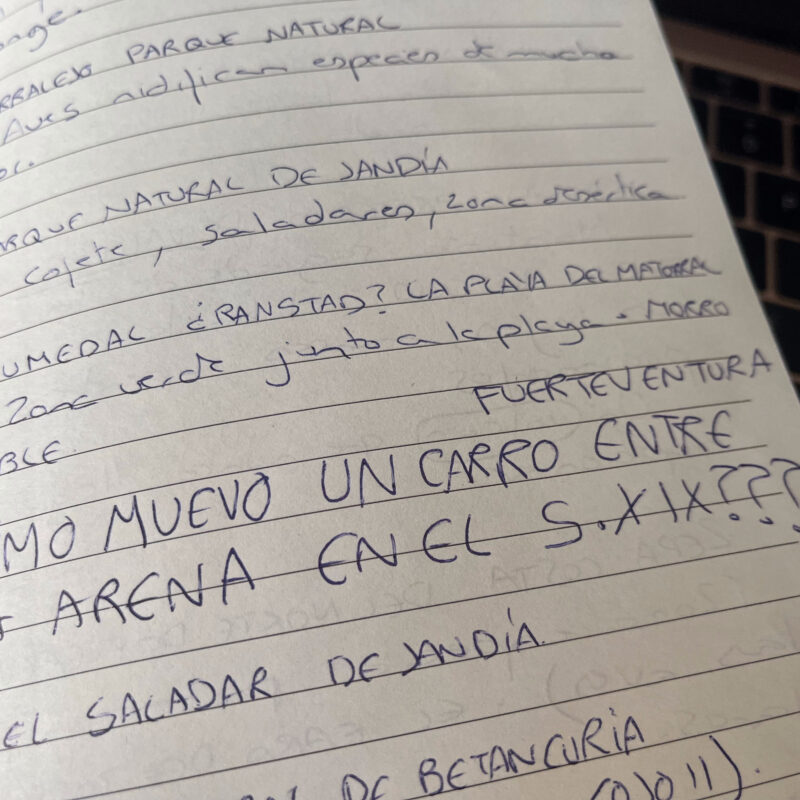 RRALEJO PARQUE NATURAL
Aves nidifican especies de mucha
RQUE NATURAL DE JANDÍA
cofete, saladares, zona desértica
UMEDAL ¿RANSTAD? LA PLAYA DEL MATORRAL
Zona verde junto a la playa. MORRO
BLE.
FUERTEVENTURA
MO MUEVO UN CARRO ENTRE
ARENA EN EL S.XIX???
EL SALADAR DE JANDÍA
DE BETANCURIA